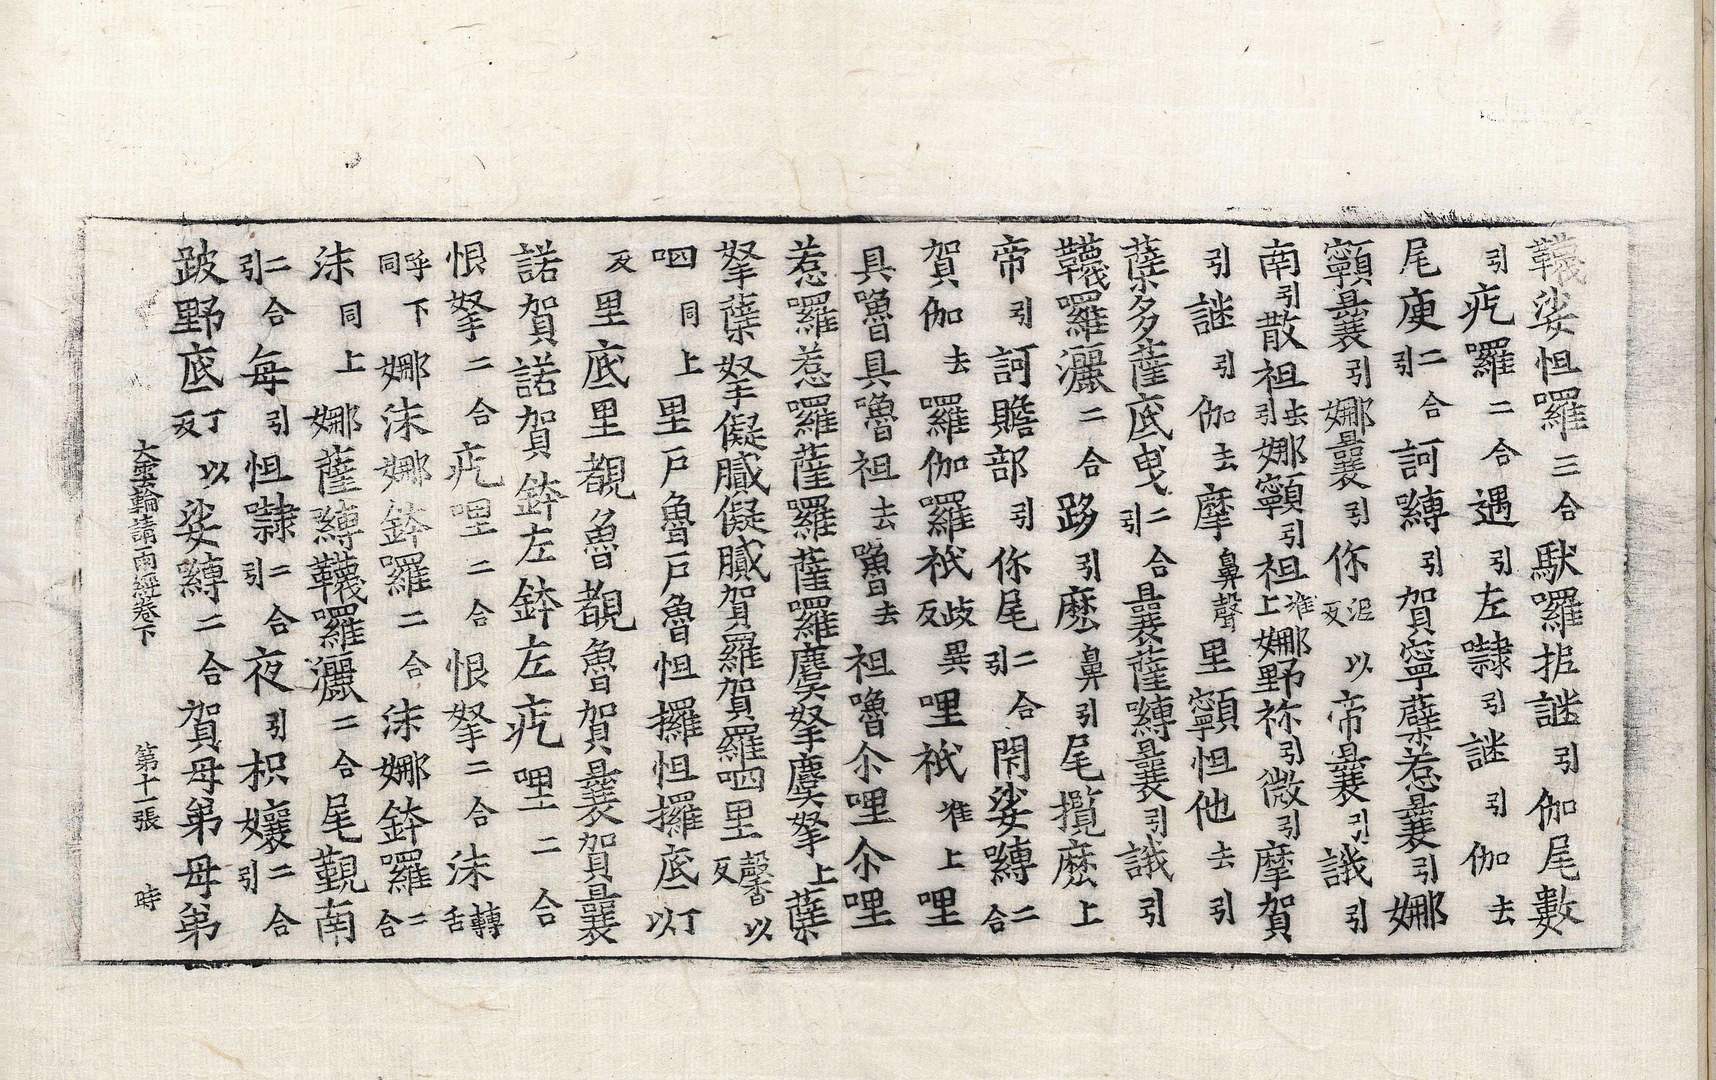 韈娑怛囉三合馱囉抳謎引伽尾數
引疙囉二合遇引左㘑引謎引伽去
尾庾二合引訶嚩引賀寧蘖惹曩引娜
顊曩引娜曩引你泥以反帝曩引誐引
南引散祖去引娜顊引祖准上娜野祢引微引摩賀
引謎引伽去摩鼻聲里顊怛他去引
蘖多薩底曳二合引曩薩嚩曩引誐引
韈囉灑二合跢引麼鼻引尾攬麼上
帝引訶贍部引你尾二合引閇娑嚩二合
賀伽去囉伽囉祇歧異反哩祇准上哩
具嚕具嚕祖去嚕去祖嚕尒哩尒哩
惹囉惹囉薩囉薩囉麌拏麌拏上蘖
拏蘖拏儗臟儗臟賀羅賀羅呬里馨以
反里底里覩魯覩魯賀曩賀曩
呬同上里戶魯戶魯怛攞怛攞底丁以
諾賀諾賀鉢左鉢左疙哩二合
恨拏二合疙哩二合恨拏二合沬轉舌
呼下同娜沬娜鉢羅二合沬娜鉢羅二合
沬同上娜薩嚩韈囉灑二合尾覲南
二合引每引怛㘑二合引夜引枳孃二合引
跛野底丁以反娑嚩二合賀母弟母弟
大雲輪請雨經卷下 第十一張 時